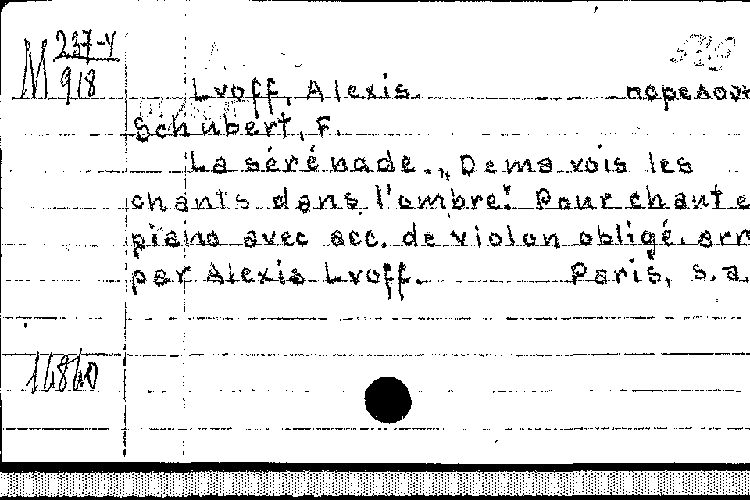 M 237-4
918
Lvoff, Alexis.
Schubert, F.
La sérénade. „Dema vois les
chants dans l'ombre." Pour chant e
piano avec acc. de violon obligé. arr
par Alexis Lvoff. Paris, s.a.